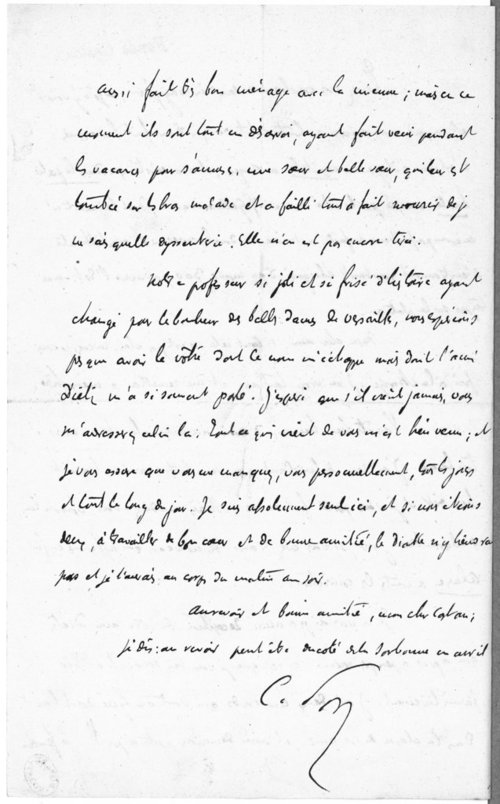 aussi fait très bon ménage avec la mienne ; mais en ce
moment ils sont tout en désarroi, ayant fait venir pendant
les vacances pour s'amuser, une sœur et belle sœur, qui leur est
tombée sur les bras malade et a failli tout à fait mourir de je
ne sais quelle dyssenterie. Elle n'en est pas encore tirée.
Notre professeur si joli et si frisé d'histoire ayant
changé pour le bonheur des belles dames de Versailles, nous espérions
presque avoir le vôtre dont le nom m'échappe mais dont l'ami
Dietz m'a si souvent parlé. J'espère que s'il vient jamais, vous
m'adresserez celui là. Tout ce qui vient de vous m'est bien venu ; et
je vous assure que vous me manquez, vous personnellement, tous les jours
et tout le long du jour. Je suis absolument seul ici, et si nous étions
deux, à travailler de bon cœur et de bonne amitié, le diable n'y tiendrait
pas et je l'aurais au corps du matin au soir.
au revoir et bonne amitié, mon cher
je dis : au revoir peut être du côté de la Sorbonne en avril